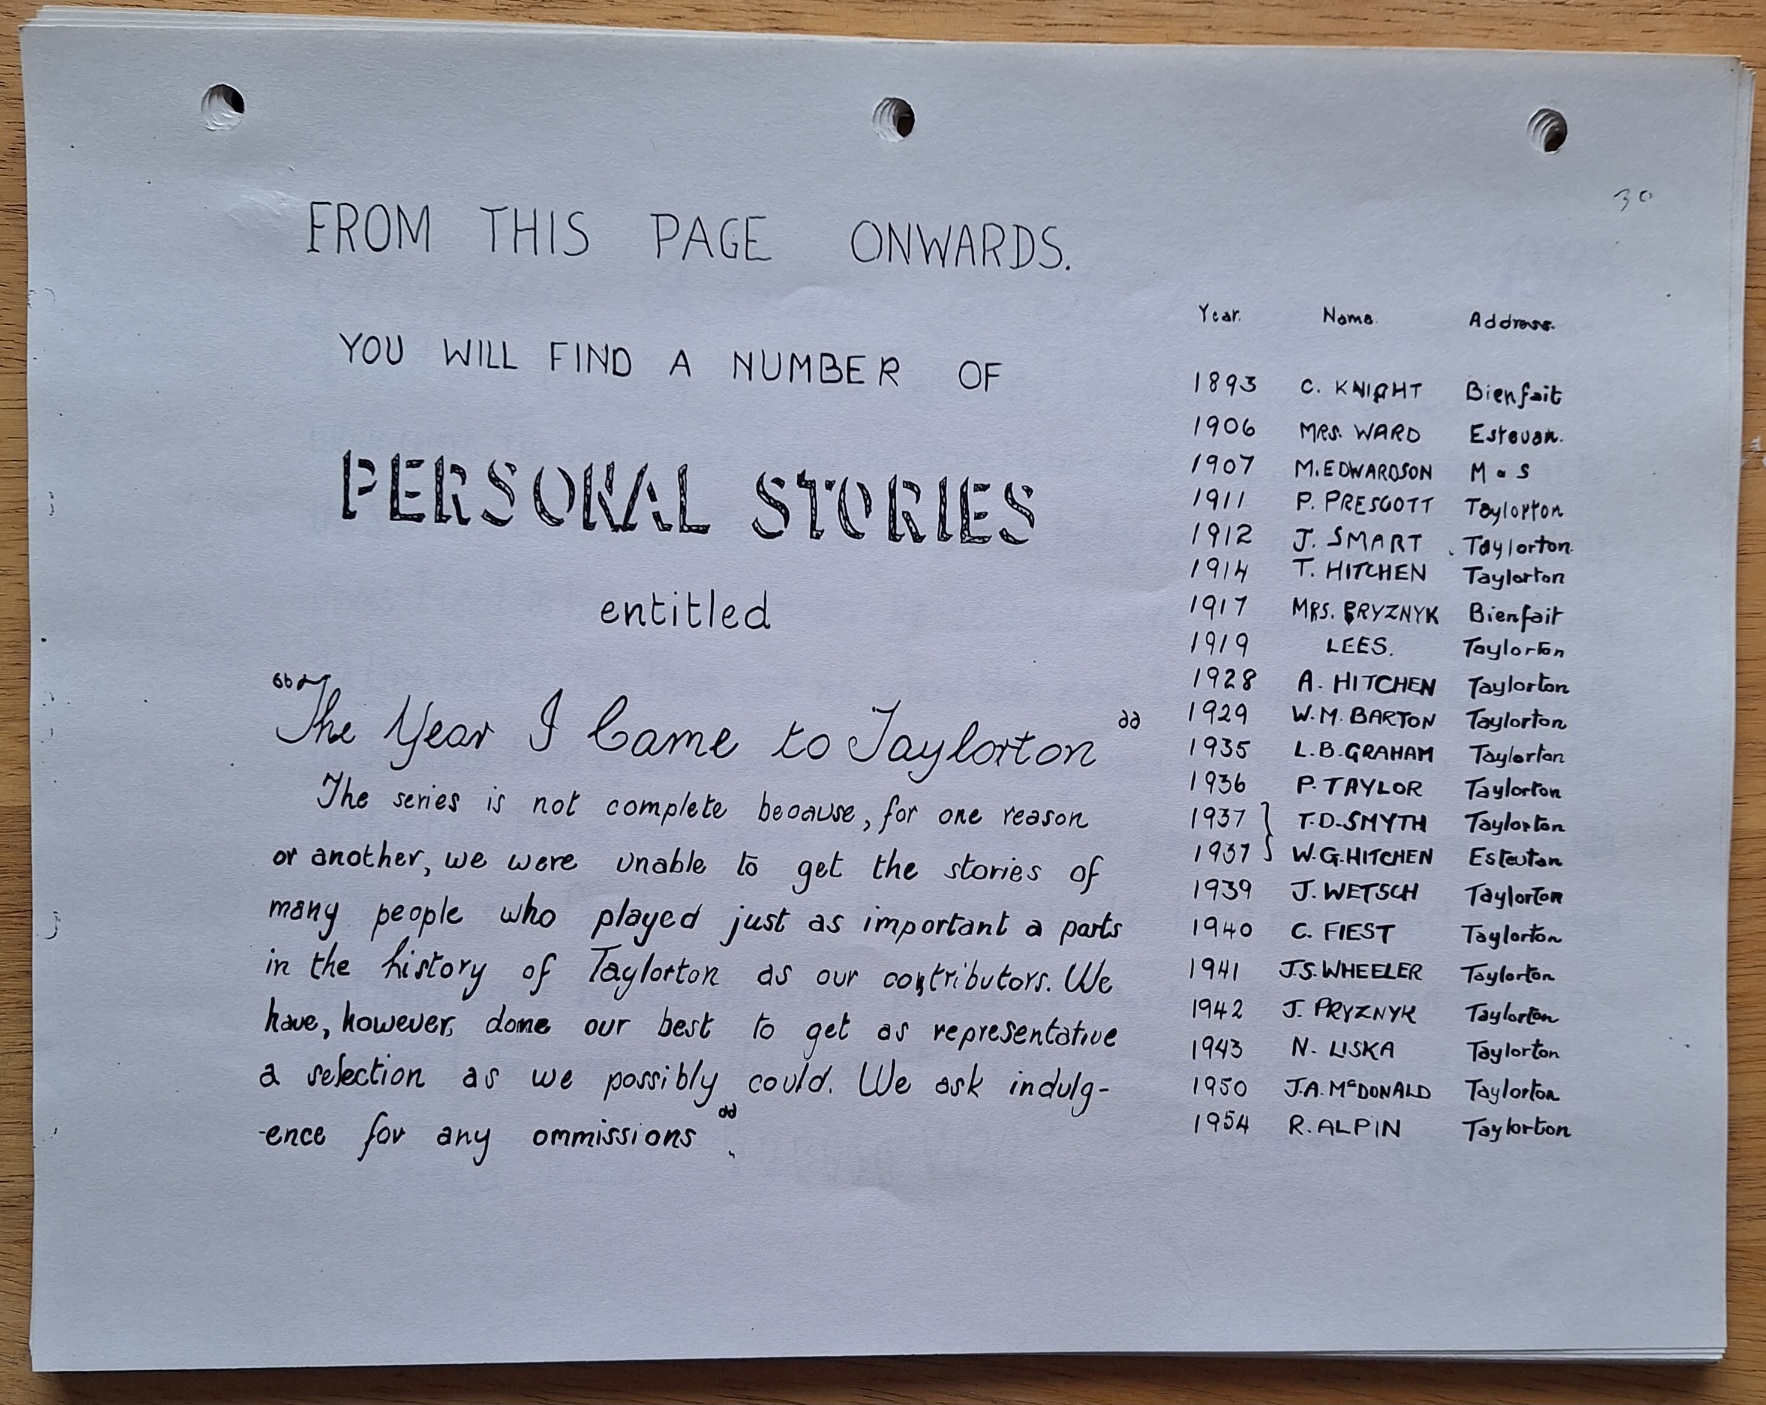 30
FROM THIS PAGE ONWARDS.
YOU WILL FIND A NUMBER OF
PERSONAL STORIES
entitled
"The Year I Came to Taylorton"
The series is not complete because, for one reason
or another, we were unable to get the stories of
many people who played just as important a parts
in the history of Taylorton as our contributors. We
have, however, done our best to get as representative
a selection as we possibly could. We ask indulg-
-ence for any ommissions".
Year. Name. Address.
1893 C. KNIGHT Bienfait
1906 MRS. WARD Estevan.
1907 M. EDWARDSON M & S
1911 P. PRESCOTT Taylorton
1912 J. SMART Taylorton
1914 T. HITCHEN Taylorton
1917 MRS. PRYZNYK Bienfait
1919 LEES. Taylorton
1928 A. HITCHEN Taylorton
1929 W.M. BARTON Taylorton
1935 L.B. GRAHAM Taylorton
1936 P. TAYLOR Taylorton
1937 } T.D. SMYTH Taylorton
1937 } W.G. HITCHEN
1939 J. WETSCH Taylorton
1940 C. FIEST Taylorton
1941 J.S. WHEELER Taylorton
1942 J. PRYZNYK Taylorton
1943 N. LISKA Taylorton
1950 J.A. McDONALD Taylorton
1954 R. ALPIN Taylorton